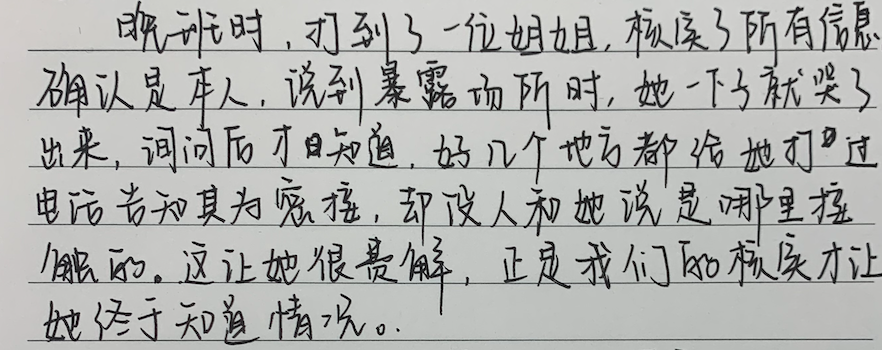 晚班时，打到了一位姐姐，核实了所有信息
确认是本人，说到暴露场所时，她一下子就哭了
出来，询问后才知道，好几个地方都给她打过
电话告知其为密接，却没人和她说是哪里接
触的。这让她很费解，正是我们的核实才让
她终于知道情况。